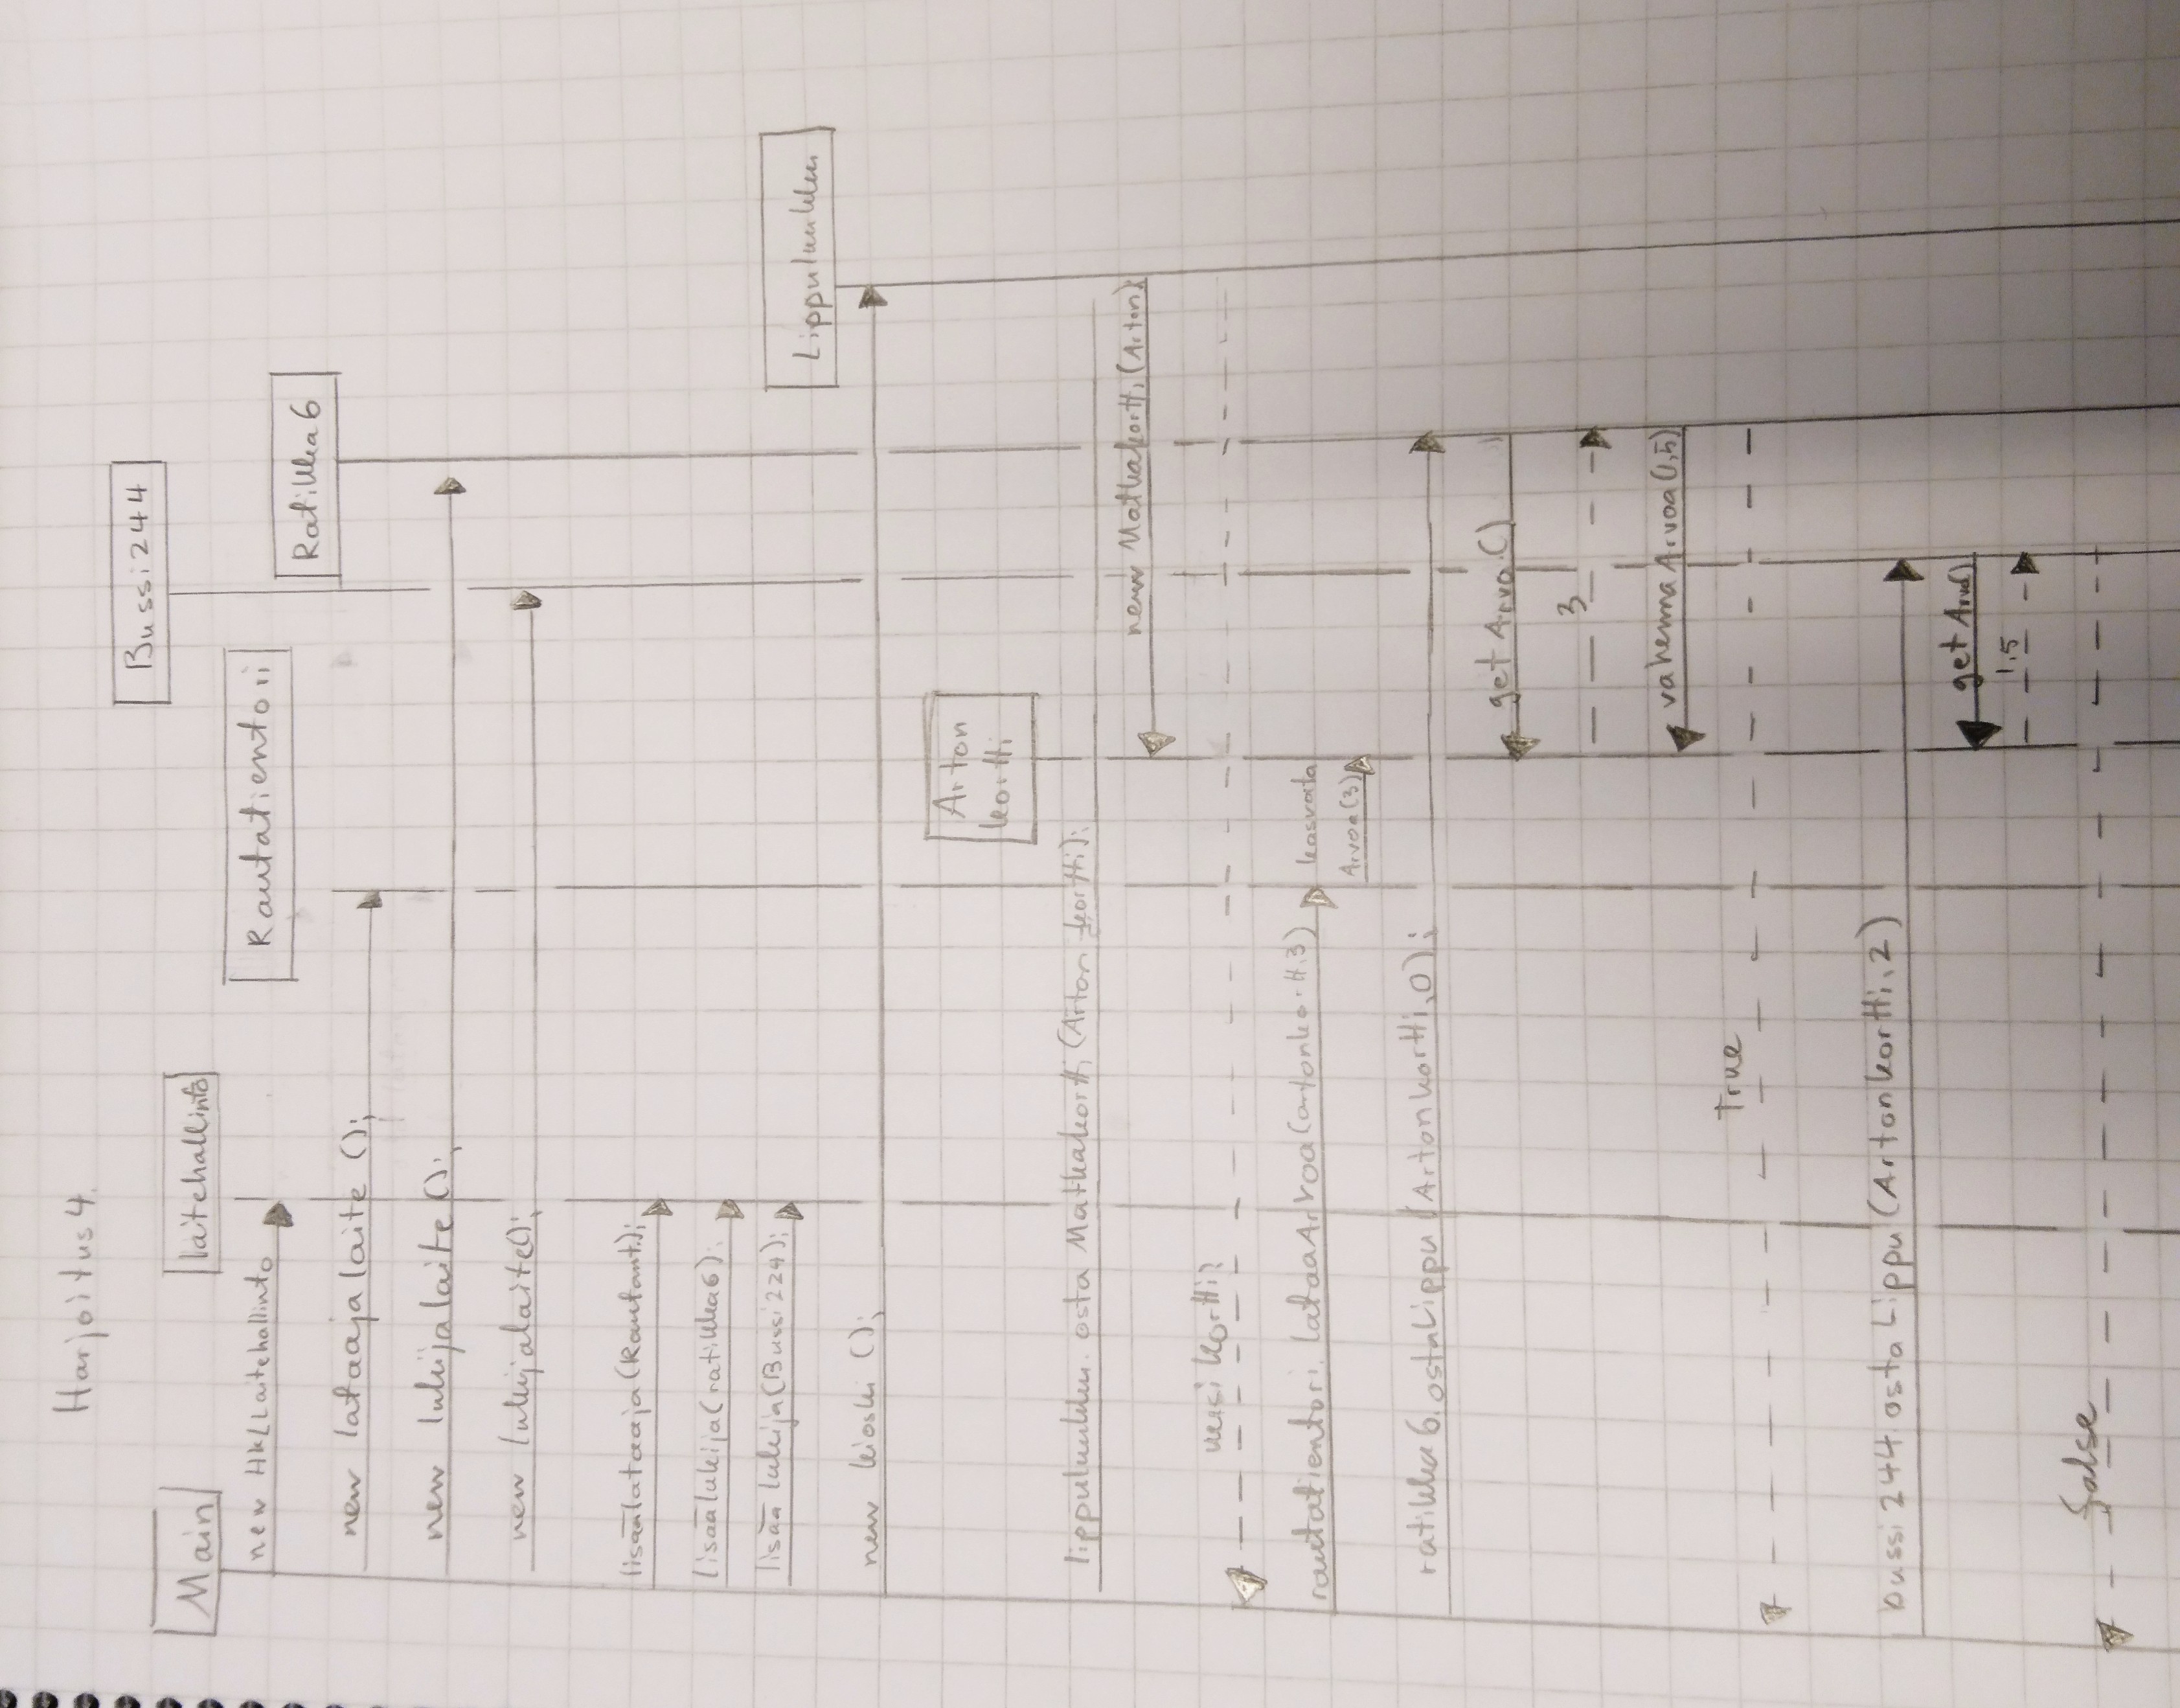 Harjoitus 4.
Main
laitehallinto
Rautatientori
Bussi244
Ratikka6
new HKLLaitehallinto
new lataajalaite ();
new lukijalaite ();
new lukijalaite();
lisäälataaja(Rautant.);
lisäälukija(ratikka6);
lisää lukija(Bussi224);
Lippuluukku
new kioski ();
Arton
kortti
lippuluukku. osta Matkakortti (Arton kortti);
new Matkakortti (Arton)
uusi kortti?
rautatientori. lataaArvoa(artonkortti,3)
kasvata
Arvoa(3)
ratikka6.ostaLippu (Artonkortti,0);
getArvo()
3
vähennäArvoa(1,5)
True
bussi244.ostaLippu (Artonkortti,2)
getArvo()
1,5
false